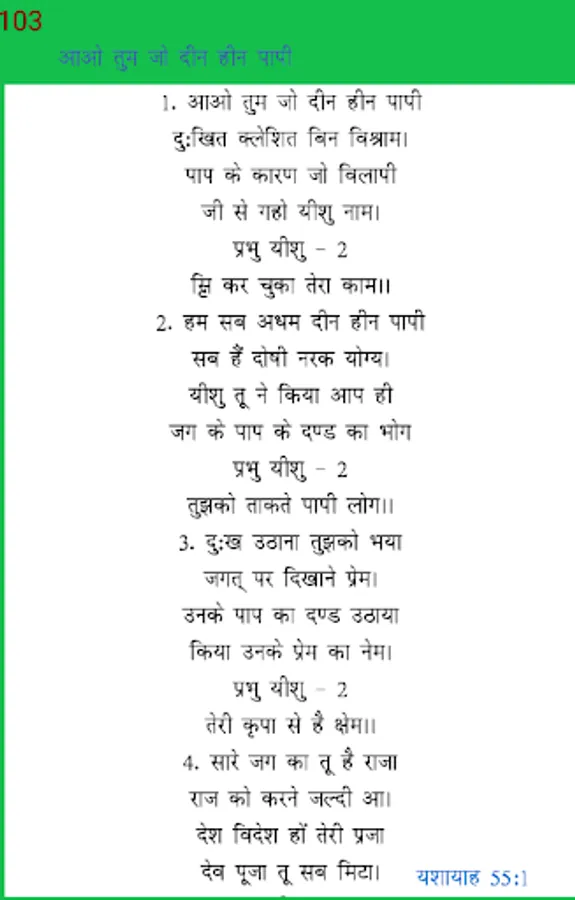 103
आओ तुम जो दीन हीन पापी
1. आओ तुम जो दीन हीन पापी
दुःखित क्लेशित बिन विश्राम।
पाप के कारण जो विलापी
जी से गहो यीशु नाम।
प्रभु यीशु - 2
कर चुका तेरा काम।।
2. हम सब अधम दीन हीन पापी
सब हैं दोषी नरक योग्य।
यीशु तू ने किया आप ही
जग के पाप के दण्ड का भोग
प्रभु यीशु - 2
तुझको ताकते पापी लोग।।
3. दुःख उठाना तुझको भया
जगत् पर दिखाने प्रेम।
उनके पाप का दण्ड उठाया
किया उनके प्रेम का नेम।
प्रभु यीशु - 2
तेरी कृपा से है क्षेम।।
4. सारे जग का तू है राजा
राज को करने जल्दी आ।
देश विदेश हों तेरी प्रजा
देव पूजा तू सब मिटा।
यशायाह 55:1